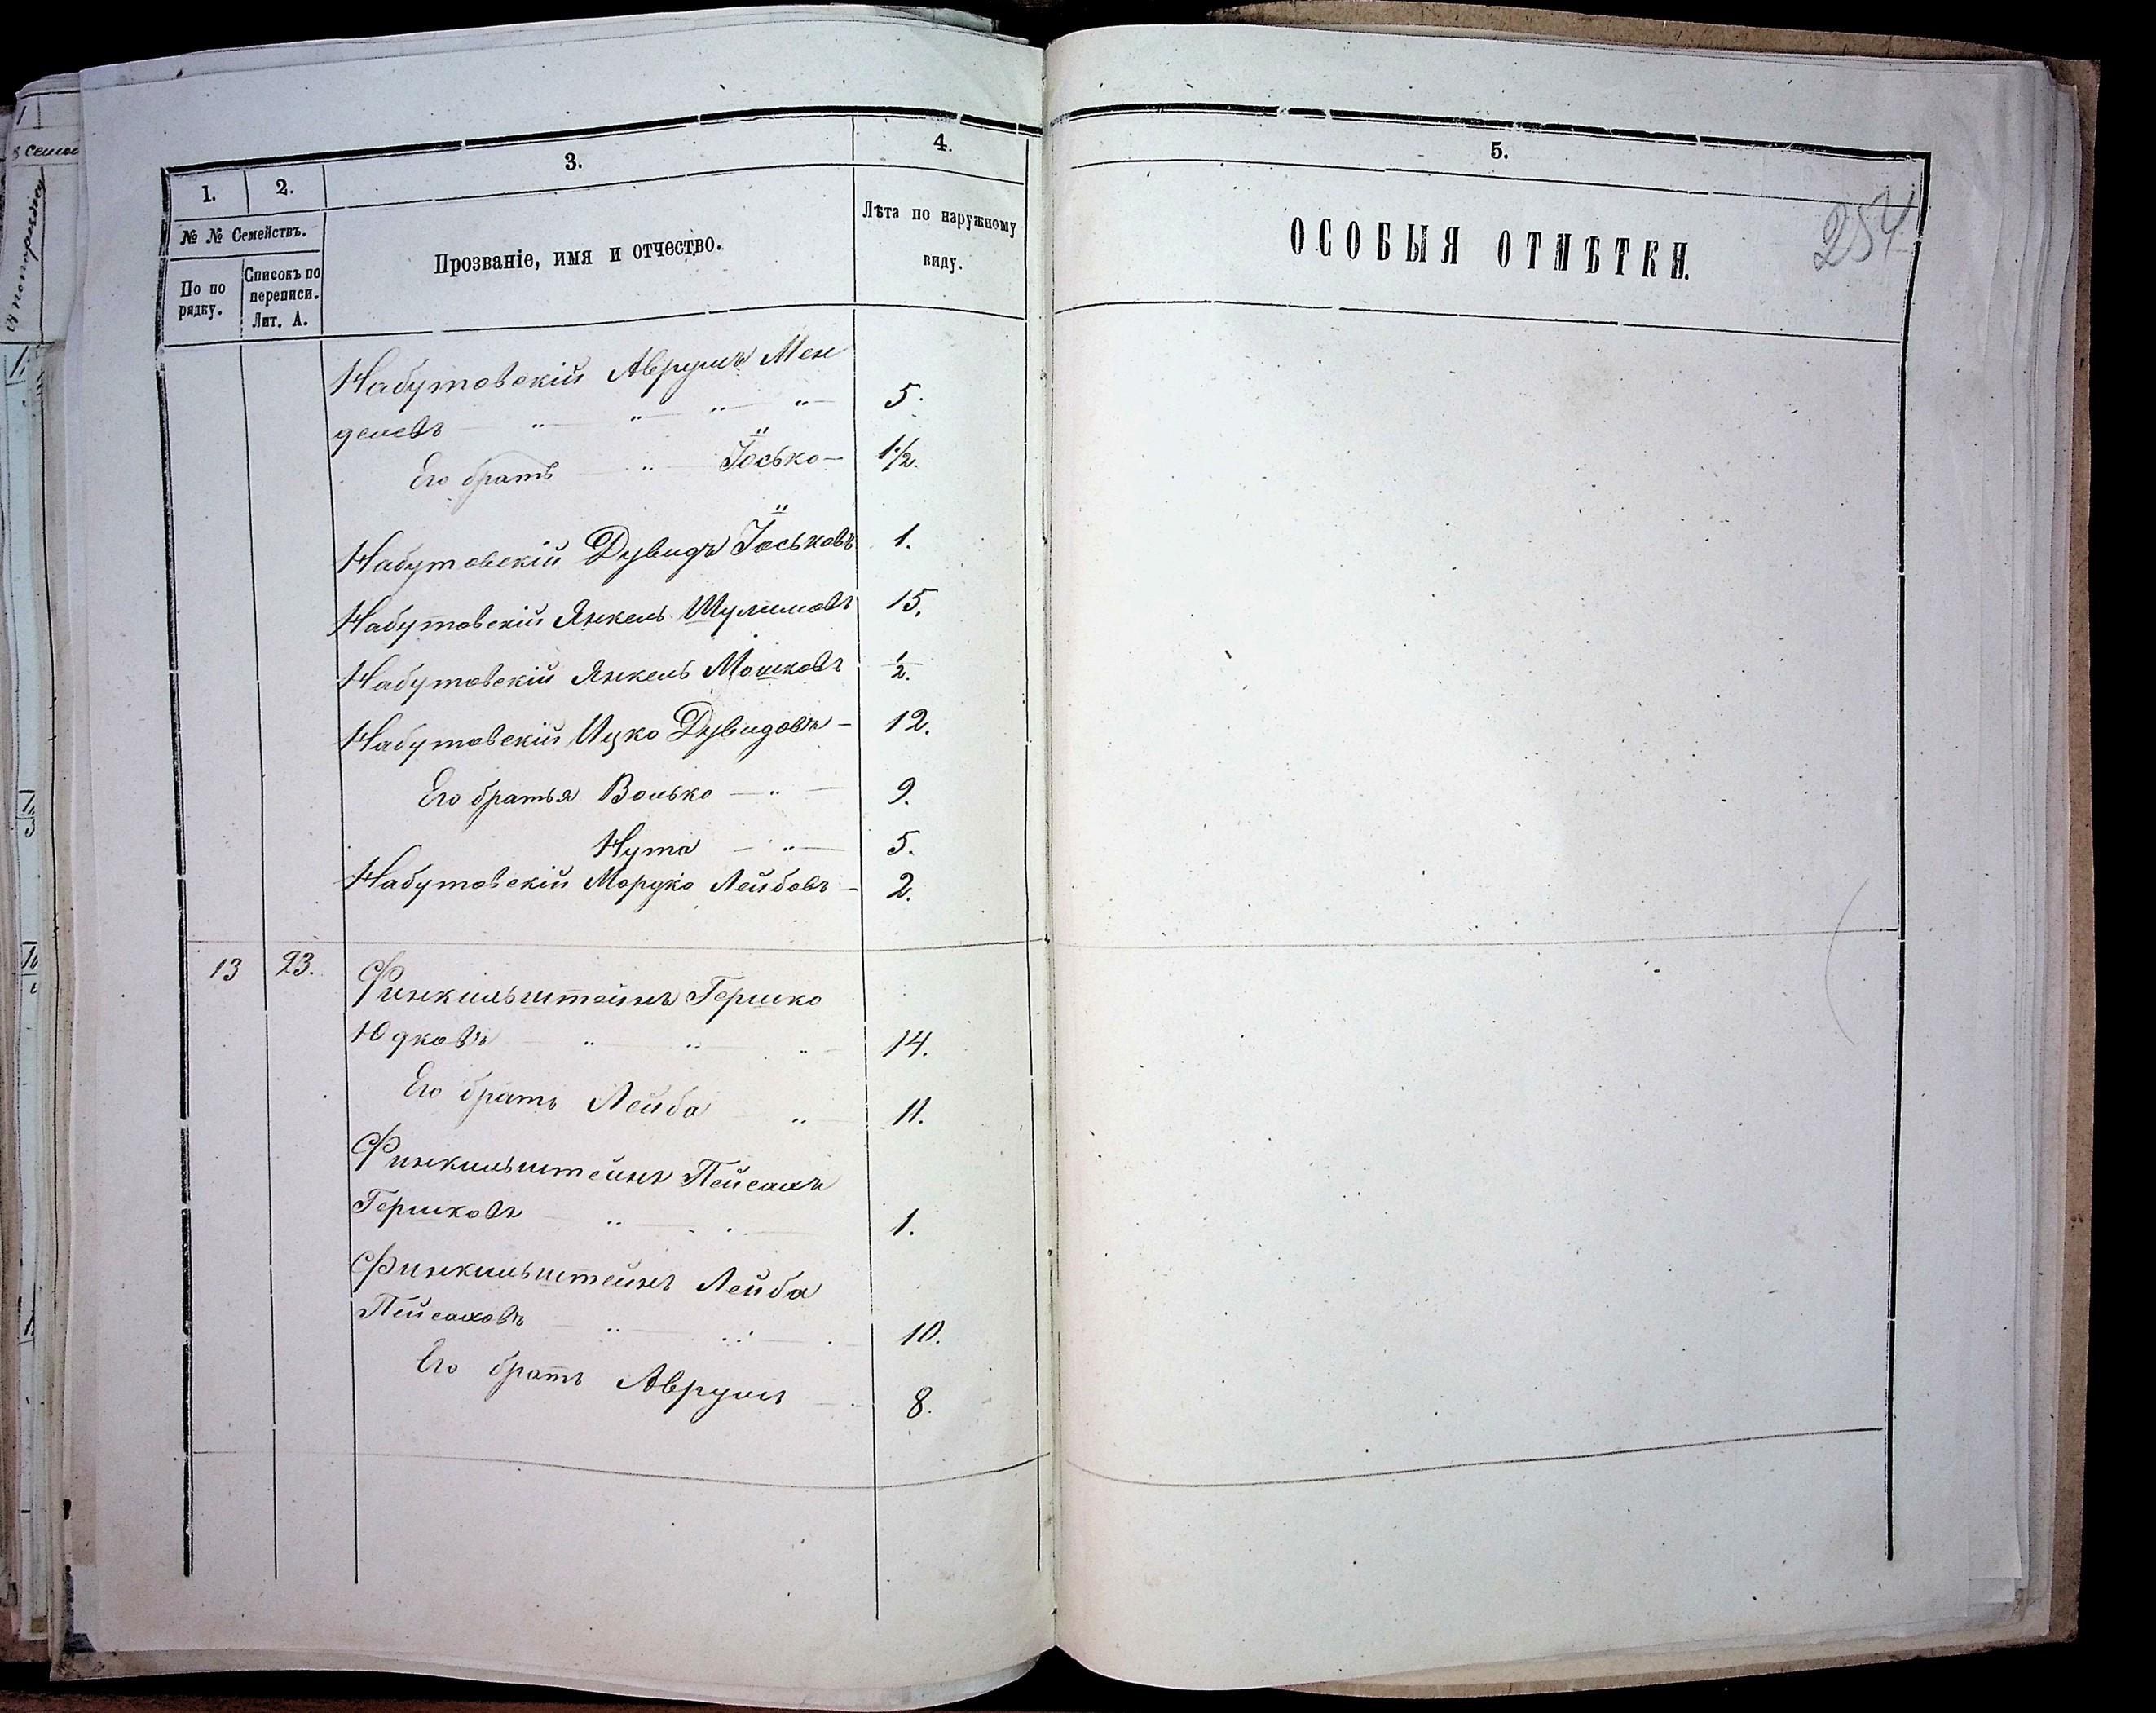 1.
2.
3.
4.
№ № Семействъ.
По по рядку.
Списокъ по переписи. Лит. А.
Прозваніе, имя и отчество.
Лѣта по наружному
виду.
Набутовскій Аврумъ Мен
делевъ — „ — „ — „ — „ — 5.
Его братъ — „ — Іосько — 1 1/2.
Набутовскій Дувидъ Іоськовъ 1.
Набутовскій Янкель Шулимовъ 15.
Набутовскій Янкель Мошковъ 1/2.
Набутовскій Ицко Дувидовъ — 12.
Его братья Волько — „ — 9.
Нута — „ — 5.
Набутовскій Мордко Лейбовъ — 2.
13 23. Финкильштейнъ Гершко
Юдковъ — „ — „ — „ — 14.
Его братъ Лейба — „ — 11.
Финкильштейнъ Пейсахъ
Гершковъ — „ — „ — 1.
Финкильштейнъ Лейба
Пейсаховъ — „ — „ — 10.
Его братъ Аврумъ — 8.
5.
ОСОБЫЯ ОТМѢТКИ.
254